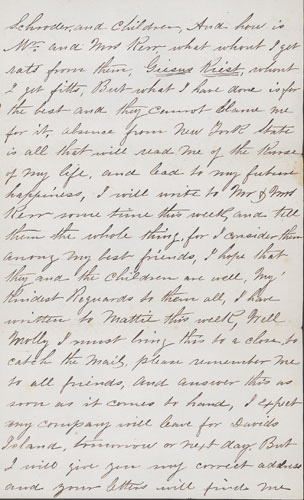 Schroder, and Children, And how is
Mr. and Mrs Kerr, what whont I get
rats from them, Giesus Kriest, whont
I get fitts, But what I have done is for
the best and they cannot blame me
for it, absence from New York State
is all that will read me of the Kurse
of my life, and lead to my future
happiness, I will write to Mr & Mrs
Kerr some time this week, and tell
them the whole thing, for I consider them
among my best friends, I hope that
they and the children are well, My
Kindest Reguards to them all, I have
written to Mattie this week, Well
Molly I must bring this to a close, to
catch the mail, please remember me
to all friends, and answer this as
soon as it comes to hand, I expet
my company will leave for Davids
Island, tomorrow or next day. But
I will give you my correct address
and your letters will find me